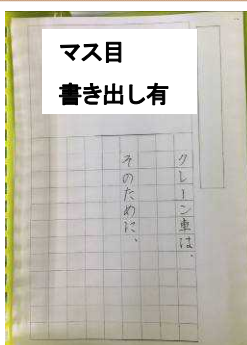 マス目
書き出し有
クレーン車は、
そのために、